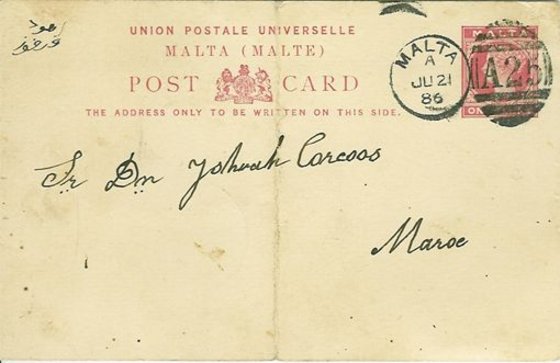 UNION POSTALE UNIVERSELLE
MALTA (MALTE)
POST CARD
THE ADDRESS ONLY TO BE WRITTEN ON THIS SIDE.
MALTA
A
JU 21
86
MALTA
A25
Sr Dn Yohuah Corcoos
Maroc